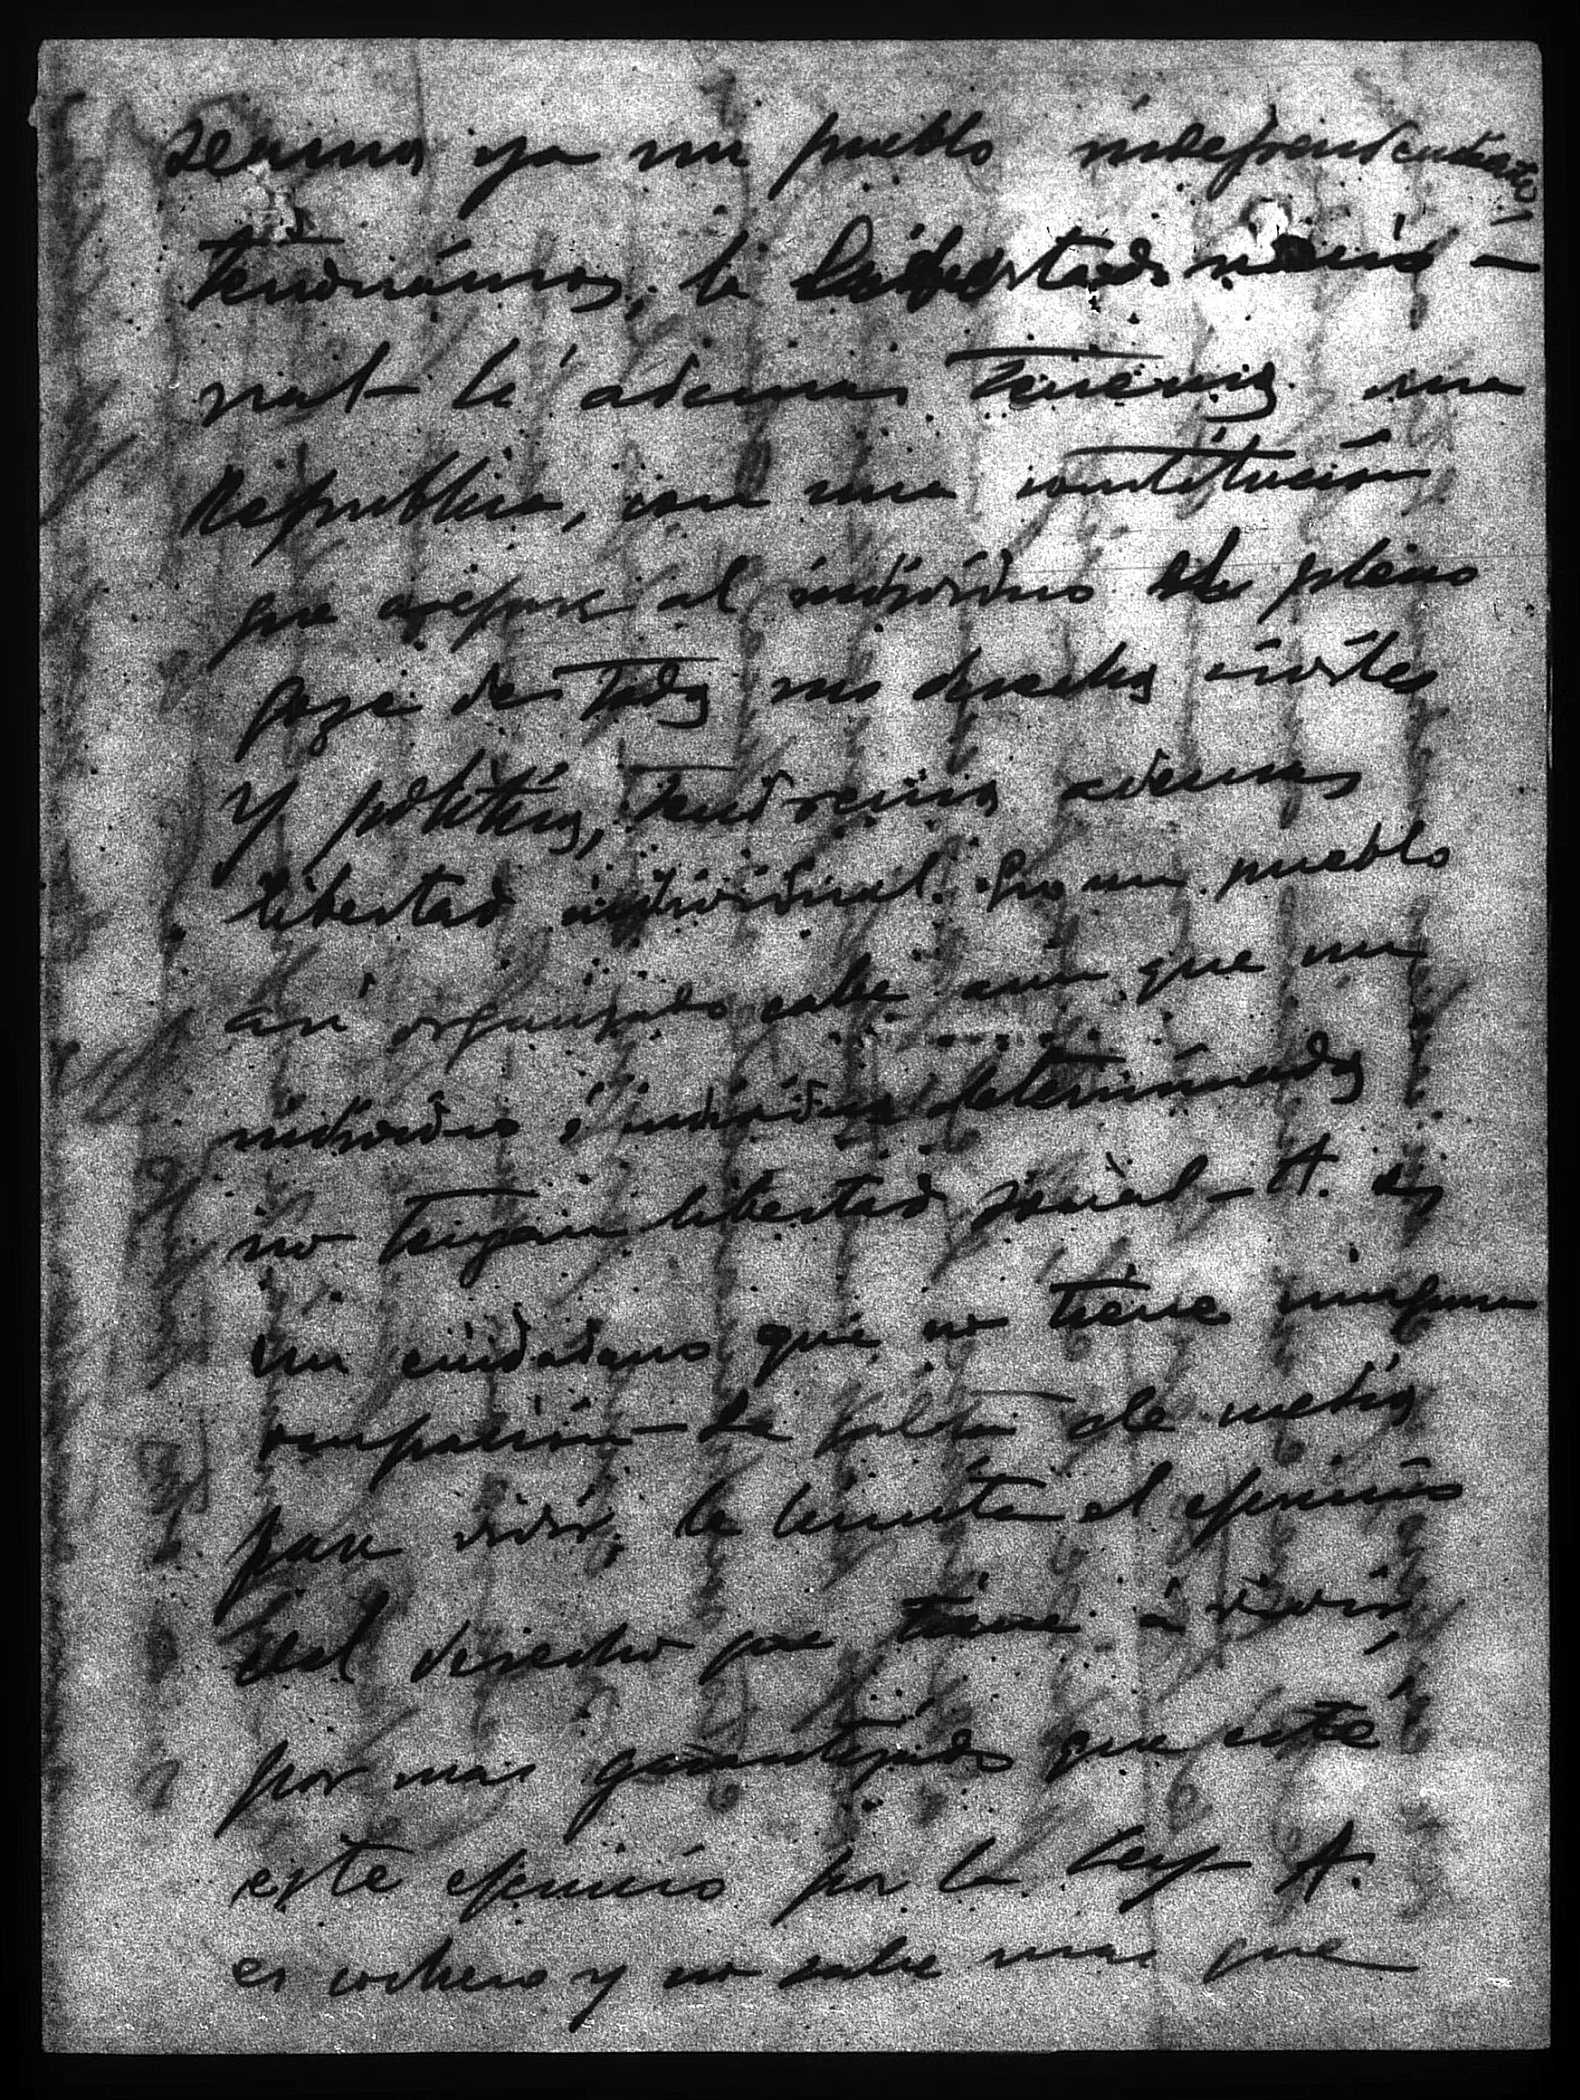 seamos ya un pueblo independiente,
tendríamos, la libertad nacio-
nal - Si además tenemos una
Republica, con una constitución
que asegure al individuo el pleno
goze de todos sus derechos civiles
y politicos, tendremos ademas
libertad individual. En un pueblo
asi organizado cabe aun que un
individuo ó individuos determinados
no tengan libertad social - A. es
un ciudadano que no tiene ninguna
ocupación - La falta de medios
para vivir, le limita el ejercicio
del derecho que tiene á vivir,
por mas garantizado que esté
este ejercicio por la ley - A.
es cochero y no sabe mas que